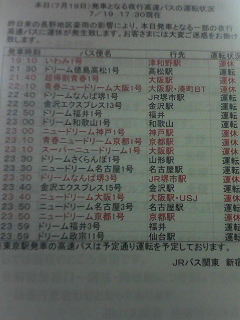 本日(7月19日)発車となる夜行高速バスの運転状況
7/19 17:30現在
昨日来の長野地区豪雨の影響により、本日発車となる一部の夜行
高速バスに運休が発生しております。お客さまには大変ご迷惑をお掛け
致します。
発車時刻 バス便名 行先 運転状況
19:10 いわみ1号 津和野駅 運休
21:30 ドリーム徳島高松1号 高松駅 運転
21:40 超得割青春1号 大阪駅 運休
22:10 青春ドリーム大阪1号 大阪駅・湊町BT 運休
22:40 ドリームなんば1号 JR堺市駅 運転
22:40 金沢エクスプレス13号 金沢駅 運転
22:50 ドリーム福井1号 福井 運転
23:00 ドリーム和歌山1号 和歌山 運転
23:00 ニュードリーム神戸1号 神戸駅 運休
23:10 青春ニュードリーム京都1号 京都駅 運休
23:10 スーパーニュードリーム1号 大阪駅 運休
23:20 ドリームさくらんぼ1号 山形駅 運転
23:30 ニュードリーム名古屋1号 名古屋駅 運転
23:30 ドリームなんば3号 JR堺市駅 運休
23:40 金沢エクスプレス15号 金沢駅 運転
23:40 ニュードリーム大阪1号 大阪駅・USJ 運休
23:50 ドリーム名古屋3号 名古屋駅 運転
23:50 ニュードリーム京都1号 京都駅 運休
23:59 ドリーム福井3号 福井 運転
23:59 ドリーム政宗11号 仙台駅 運転
東京駅発車の高速バスは予定通り運転を予定しております。
JRバス関東 新宿